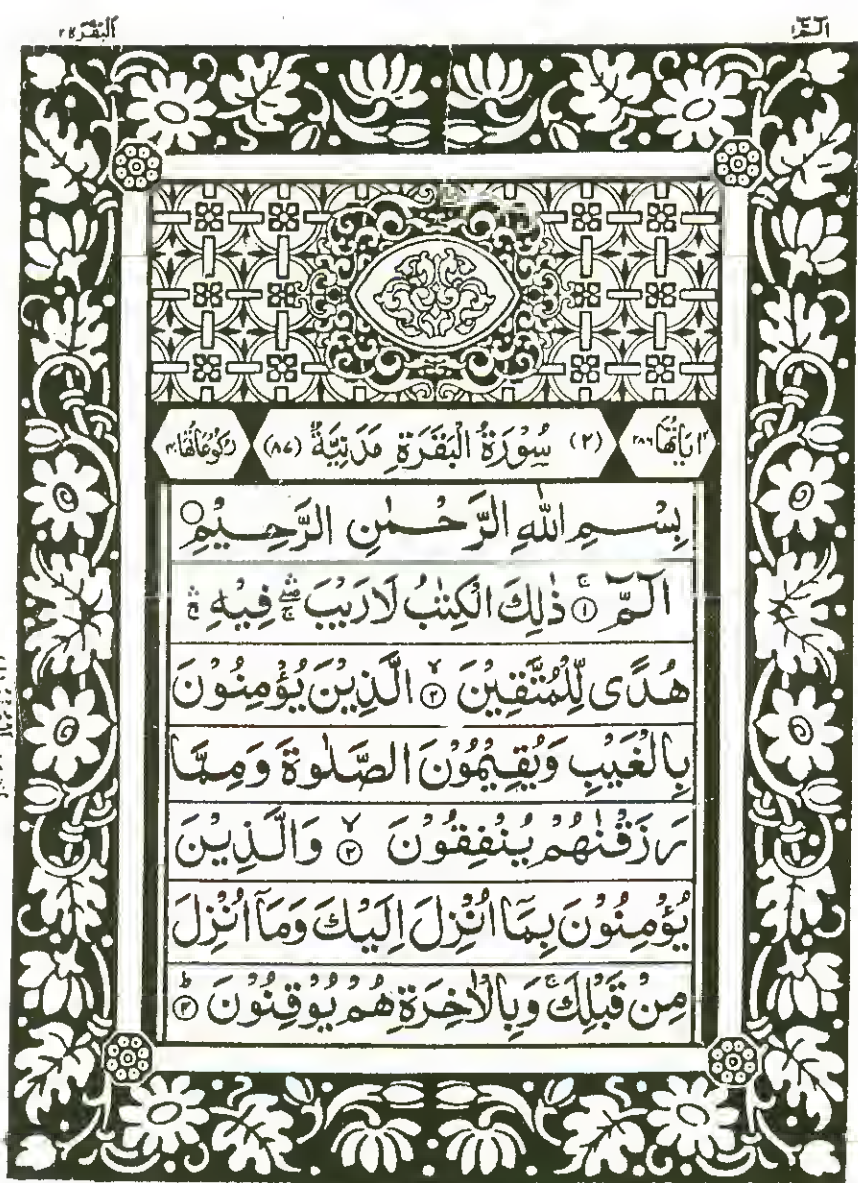 الٓمّٓ ١
البقرة ٢
اٰيَاتُهَا ٢٨٦
(٢) سُوْرَةُ الْبَقَرَةِ مَدَنِيَّةٌ (٨٧)
رُكُوْعَاتُهَا ٤٠
بِسْمِ اللّٰهِ الرَّحْمٰنِ الرَّحِيْمِ
الٓمّٓ ۚ ١ ذٰلِكَ الْكِتٰبُ لَارَيْبَ ۛۖۚ فِيْهِ ۛۚ
هُدًى لِّلْمُتَّقِيْنَ ۙ ٢ الَّذِيْنَ يُؤْمِنُوْنَ
بِالْغَيْبِ وَيُقِيْمُوْنَ الصَّلٰوةَ وَمِمَّا
رَزَقْنٰهُمْ يُنْفِقُوْنَ ۙ ٣ وَالَّذِيْنَ
يُؤْمِنُوْنَ بِمَآ اُنْزِلَ اِلَيْكَ وَمَآ اُنْزِلَ
مِنْ قَبْلِكَ ۚ وَبِالْاٰخِرَةِ هُمْ يُوْقِنُوْنَ ؕ ٤